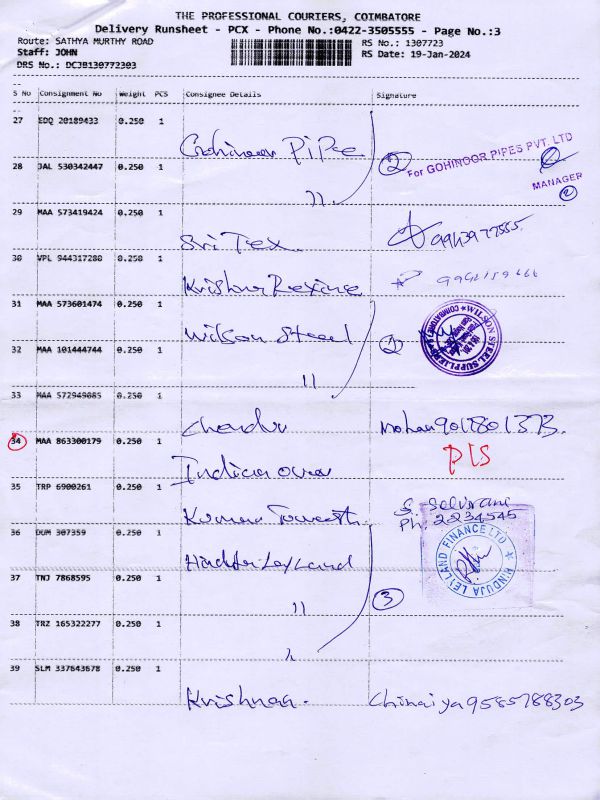 THE PROFESSIONAL COURIERS, COIMBATORE
Delivery Runsheet - PCX - Phone No.:0422-3505555 - Page No.:3
Route: SATHYA MURTHY ROAD
Staff: JOHN
DRS No.: DCJB130772303
RS No.: 1307723
RS Date: 19-Jan-2024
S No Consignment No Weight PCS Consignee Details Signature
27 EDQ 20189433 0.250 1
Gohinoor Pipe 2 For GOHINOOR PIPES PVT. LTD
MANAGER
2
28 JAL 530342447 0.250 1
11
29 MAA 573419424 0.250 1
Sri Tex
30 VPL 944317280 0.250 1
Krishna Rexine
31 MAA 573601474 0.250 1
Wilson Steel WILSON STEEL SUPPLIERS COIMBATORE
32 MAA 101444744 0.250 1
11
33 MAA 572949085 0.250 1
Chandu
34 MAA 863300179 0.250 1
PIS
35 TRP 6900261 0.250 1
Kumar
Ph: 2234545
36 DUM 307359 0.250 1
HINDUJA LEYLAND FINANCE LTD
37 TNJ 7868595 0.250 1
11 3
38 TRZ 165322277 0.250 1
39 SLM 337643678 0.250 1
Krishnaa. Chinaiya 9585788303